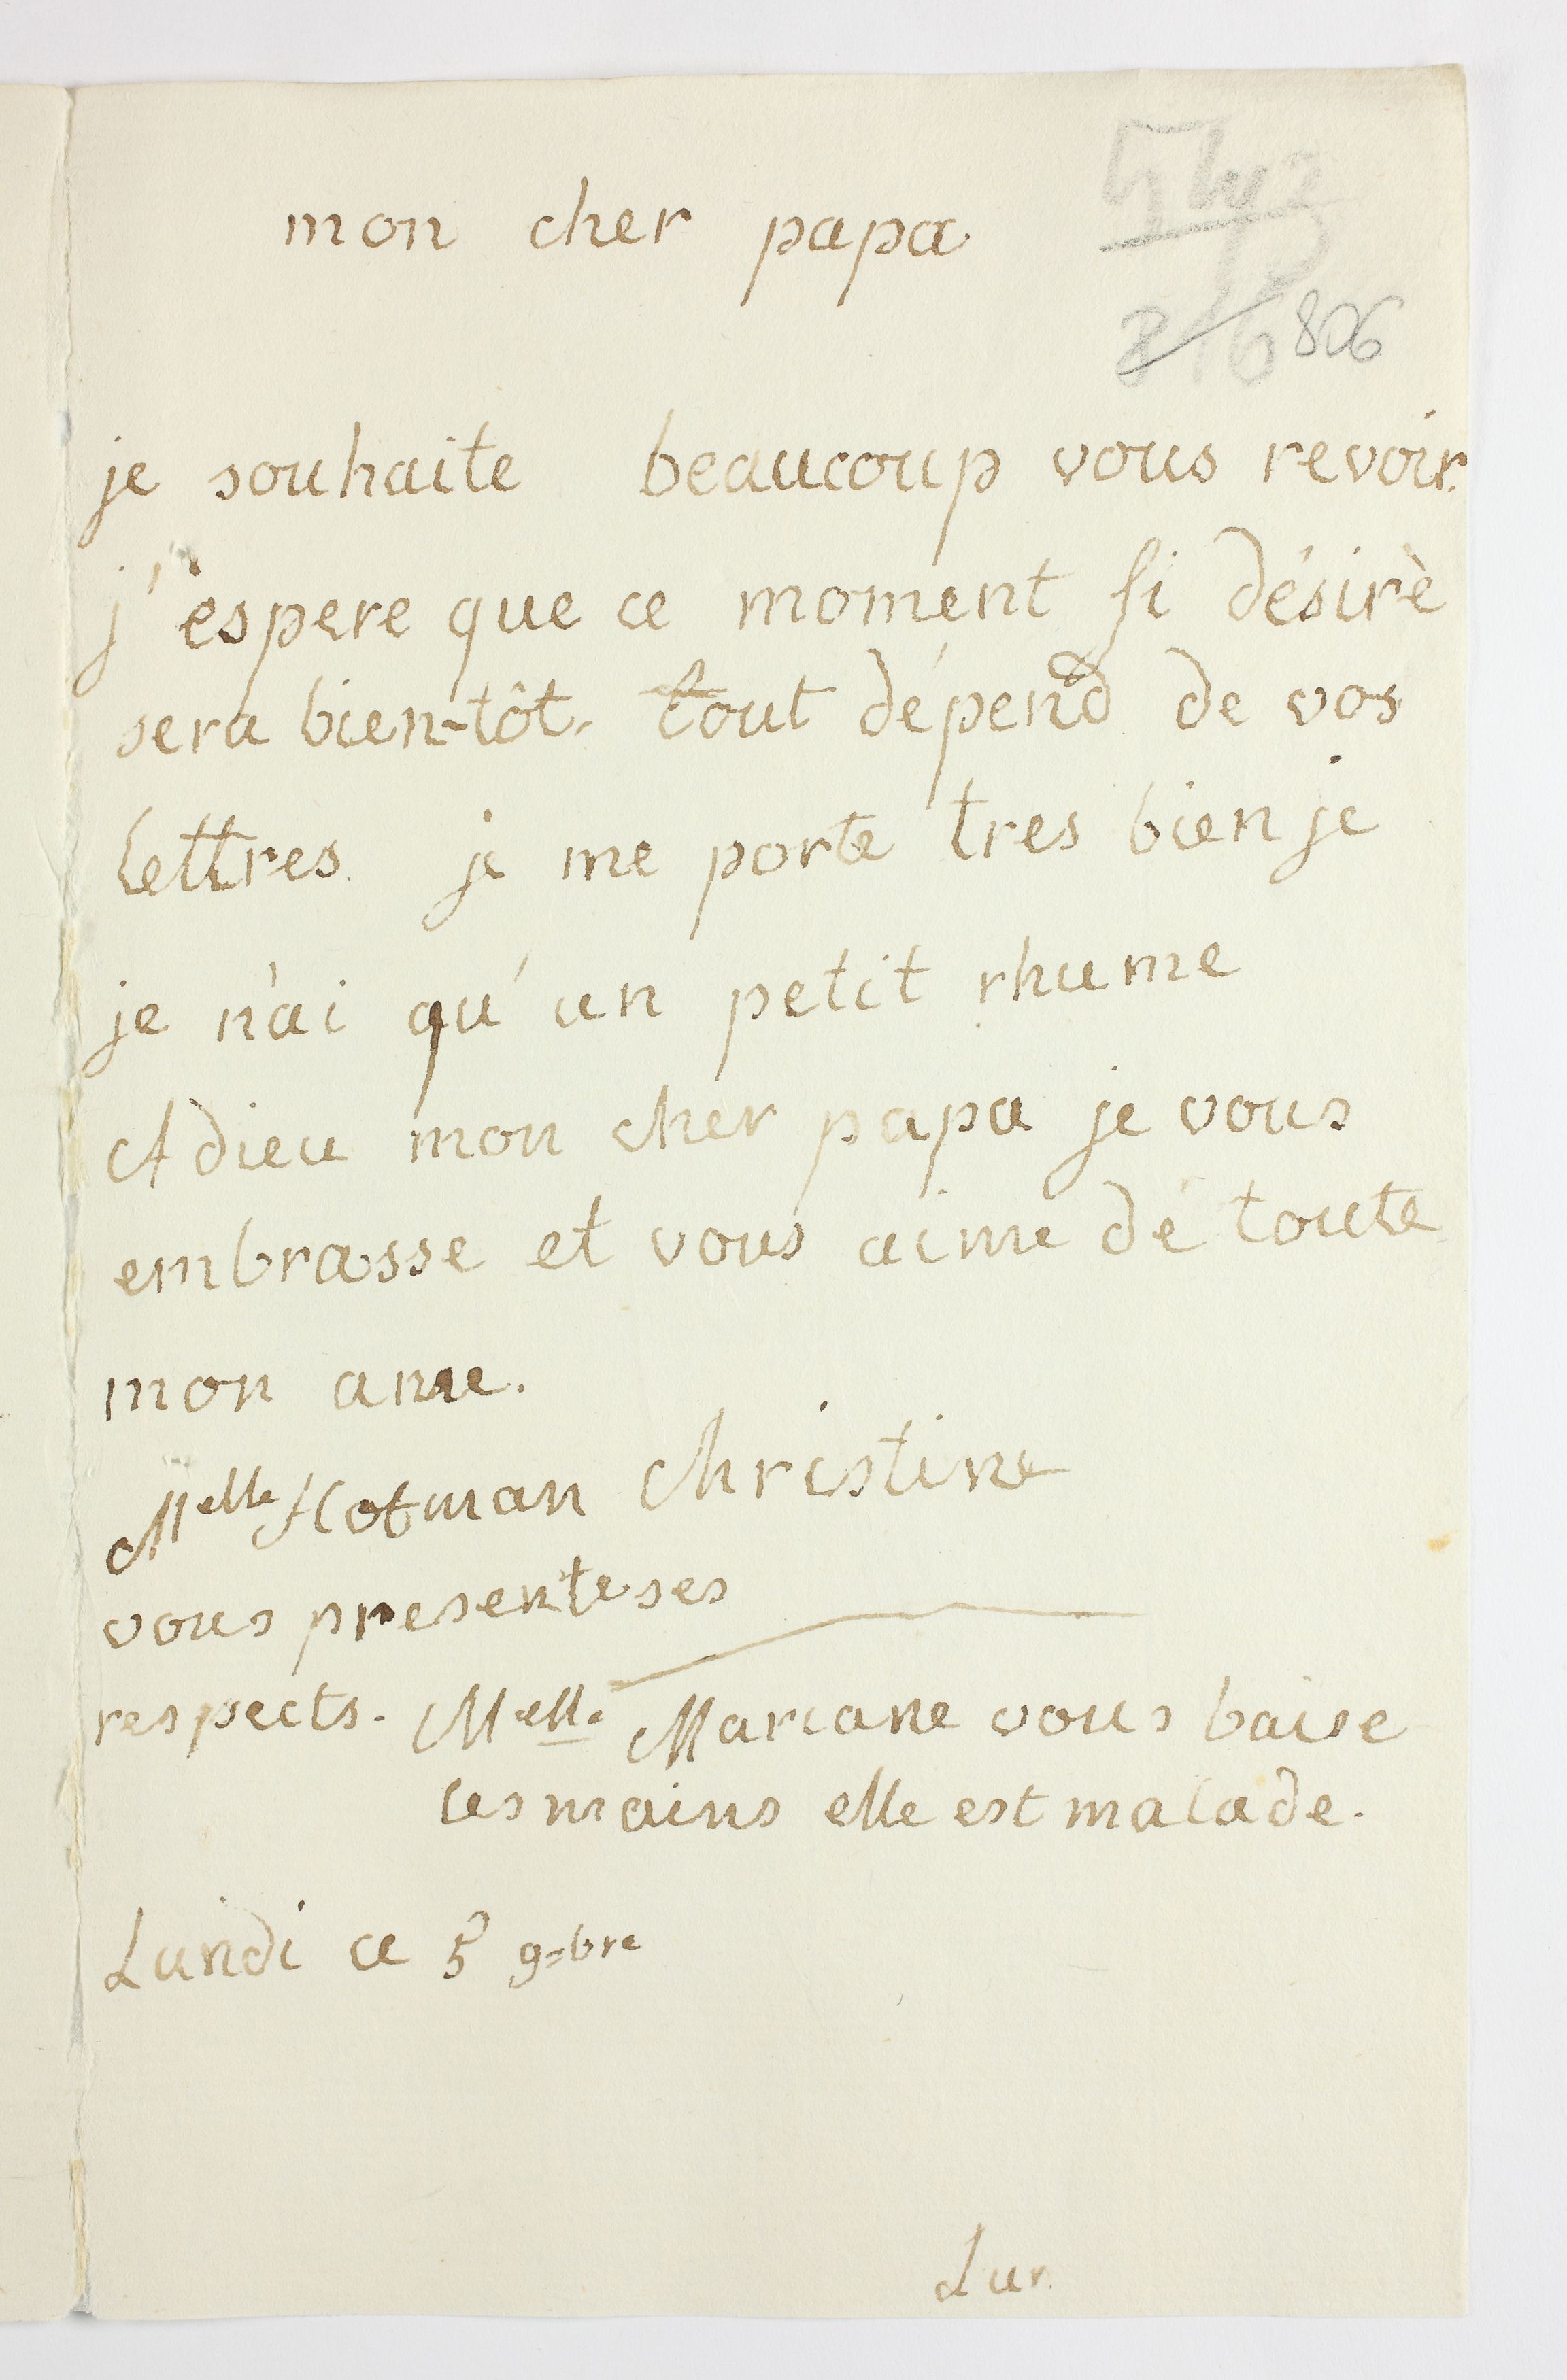 mon cher papa
806
je souhaite beaucoup vous revoir.
j'espere que ce moment si désirè
sera bien-tôt. tout dépend de vos
lettres. je me porte tres bien je
je n'ai qu'un petit rhume
Adieu mon cher papa je vous
embrasse et vous aime de toute
mon ame.
Melle Hotman Christine
vous presente ses
respects. Melle Mariane vous baise
les mains elle est malade.
Lundi ce 5 9=bre
Lun